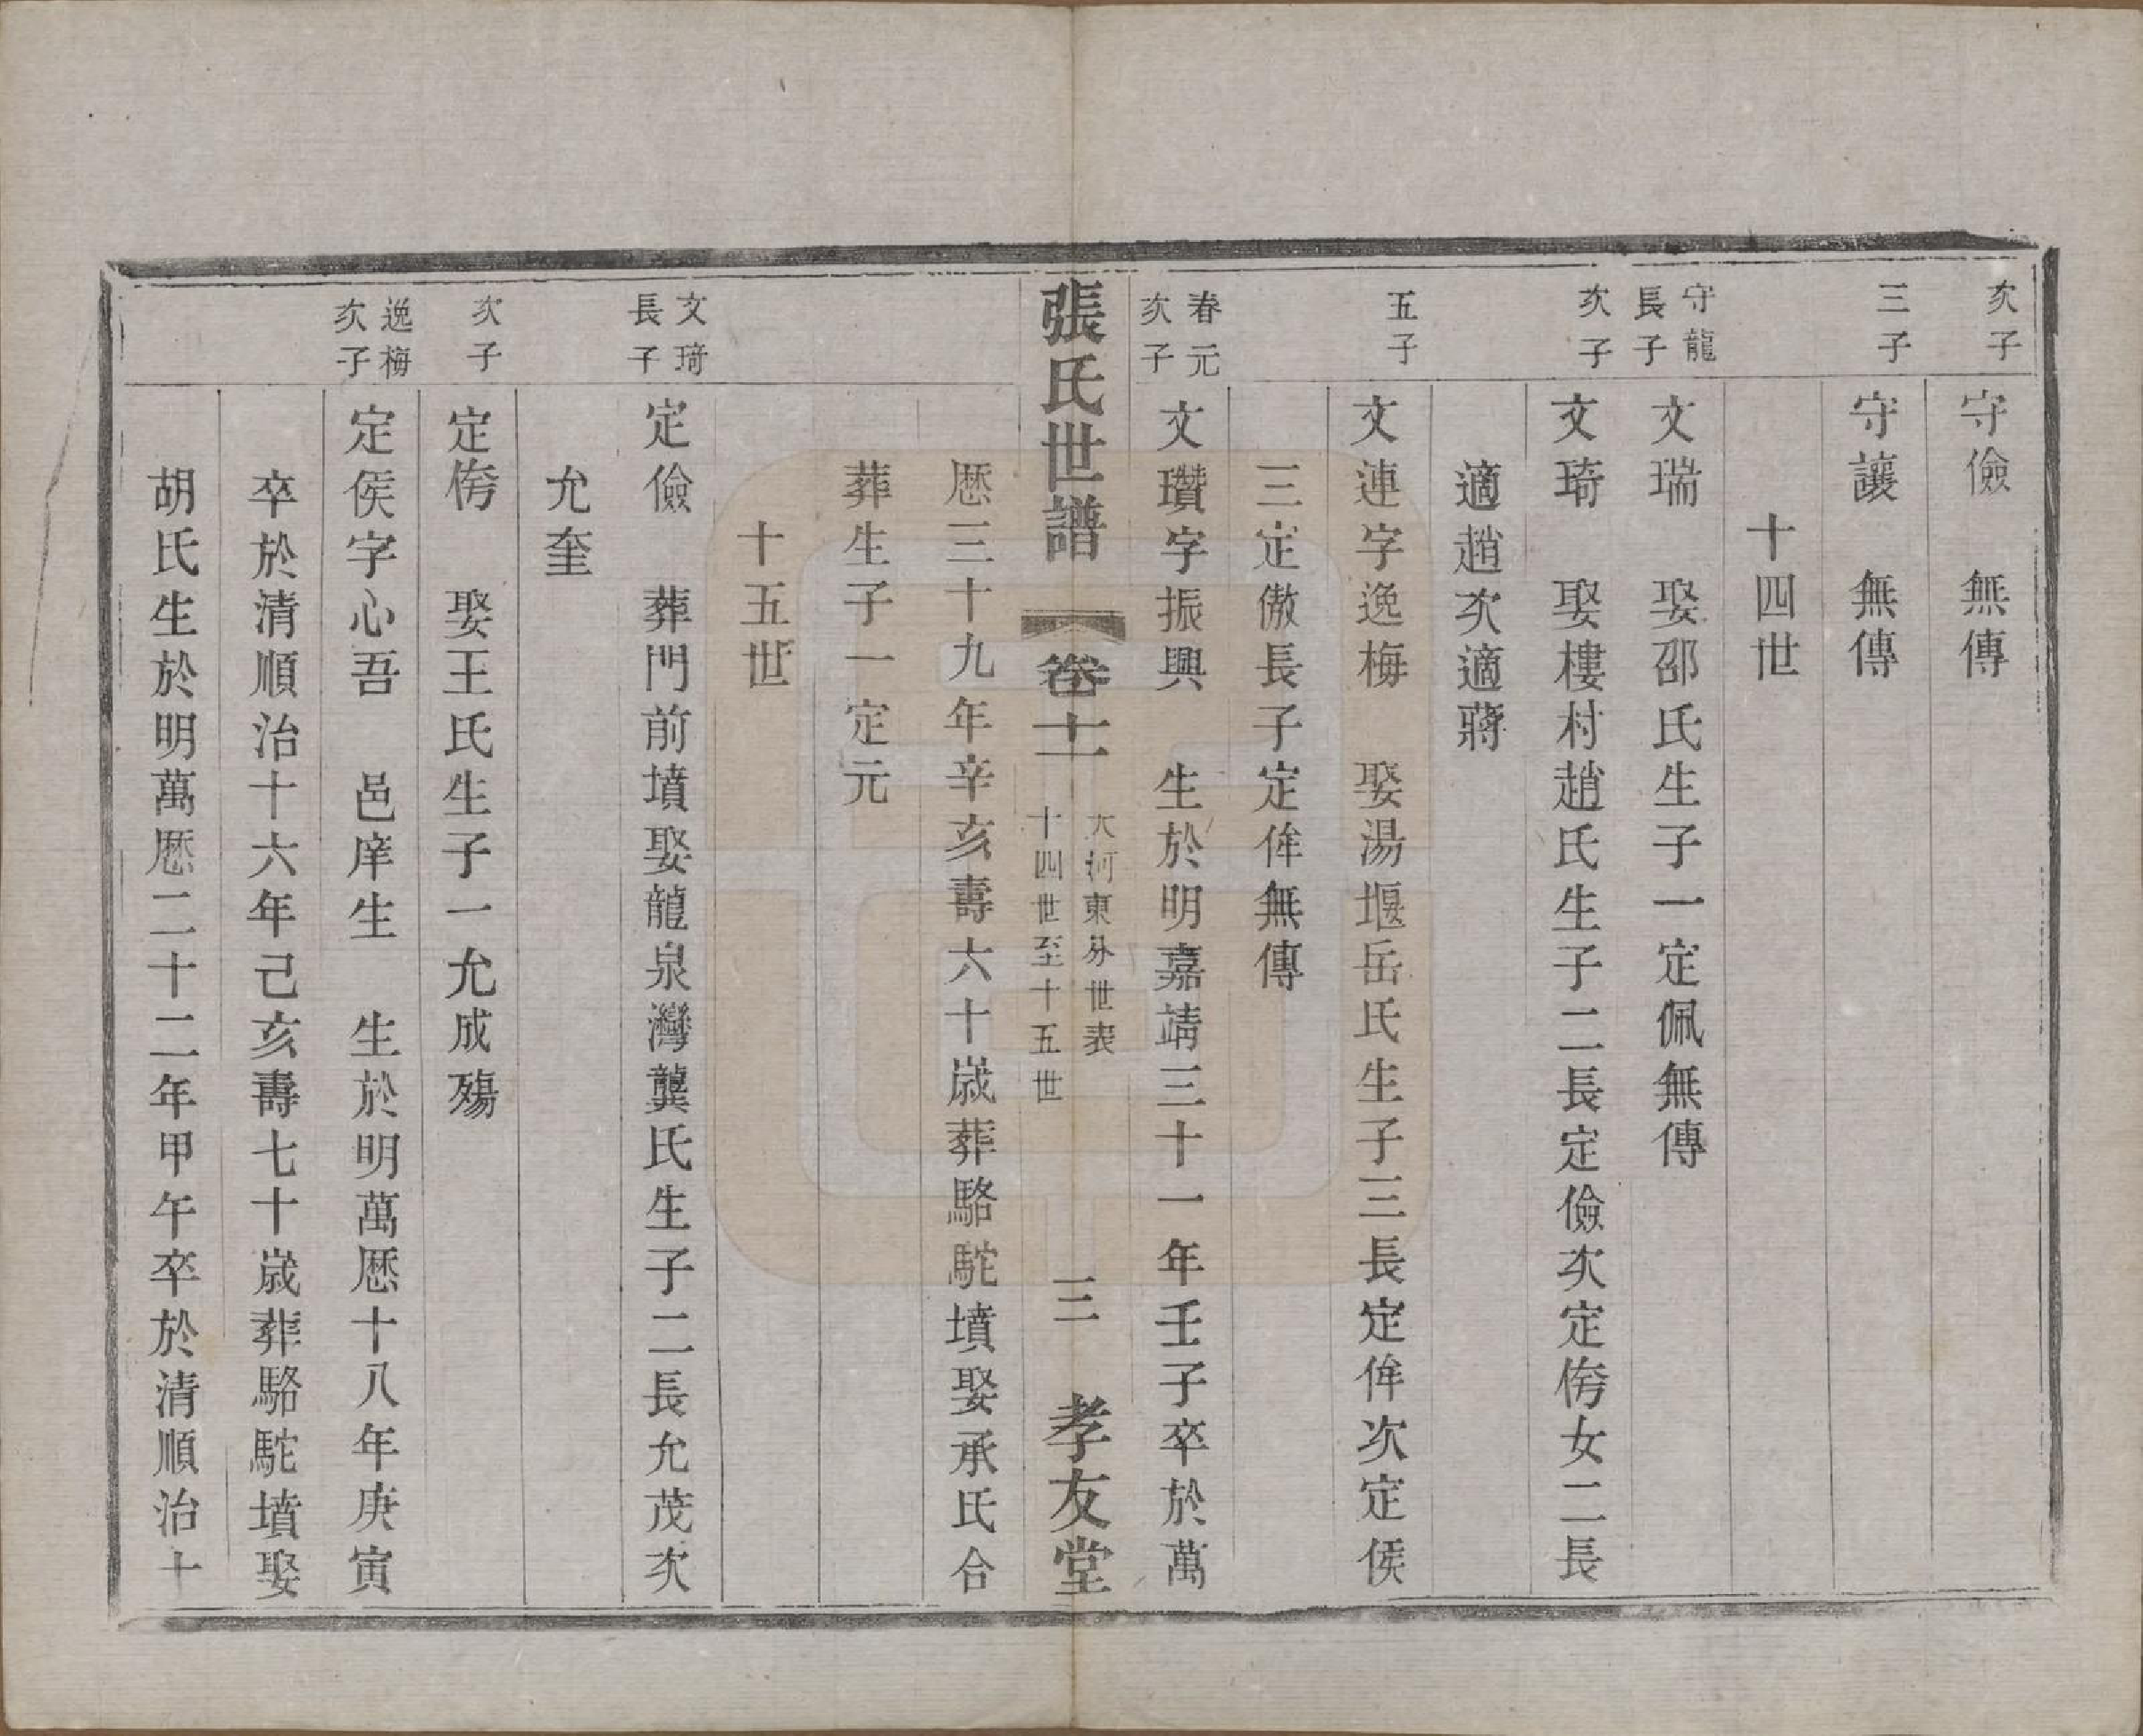 次子
守儉　無傳
三子
守讓　無傳
十四世
守龍
長子
文瑞　娶邵氏生子一定佩無傳
次子
文琦　娶樓村趙氏生子二長定儉次定侉女二長
適趙次適蔣
五子
文連字逸梅　娶湯堰岳氏生子三長定侔次定侯
三定傲長子定侔無傳
春元
次子
文瓚字振興　生於明嘉靖三十一年壬子卒於萬
張氏世譜
卷十一
大河東分世表
十四世至十五世
三
孝友堂
厯三十九年辛亥壽六十歲葬駱駝墳娶承氏合
葬生子一定元
十五世
文琦
長子
定儉　葬門前墳娶龍泉灣龔氏生子二長允茂次
允奎
次子
定侉　娶王氏生子一允成殤
逸梅
次子
定侯字心吾　邑庠生　生於明萬厯十八年庚寅
卒於清順治十六年己亥壽七十歲葬駱駝墳娶
胡氏生於明萬厯二十二年甲午卒於清順治十